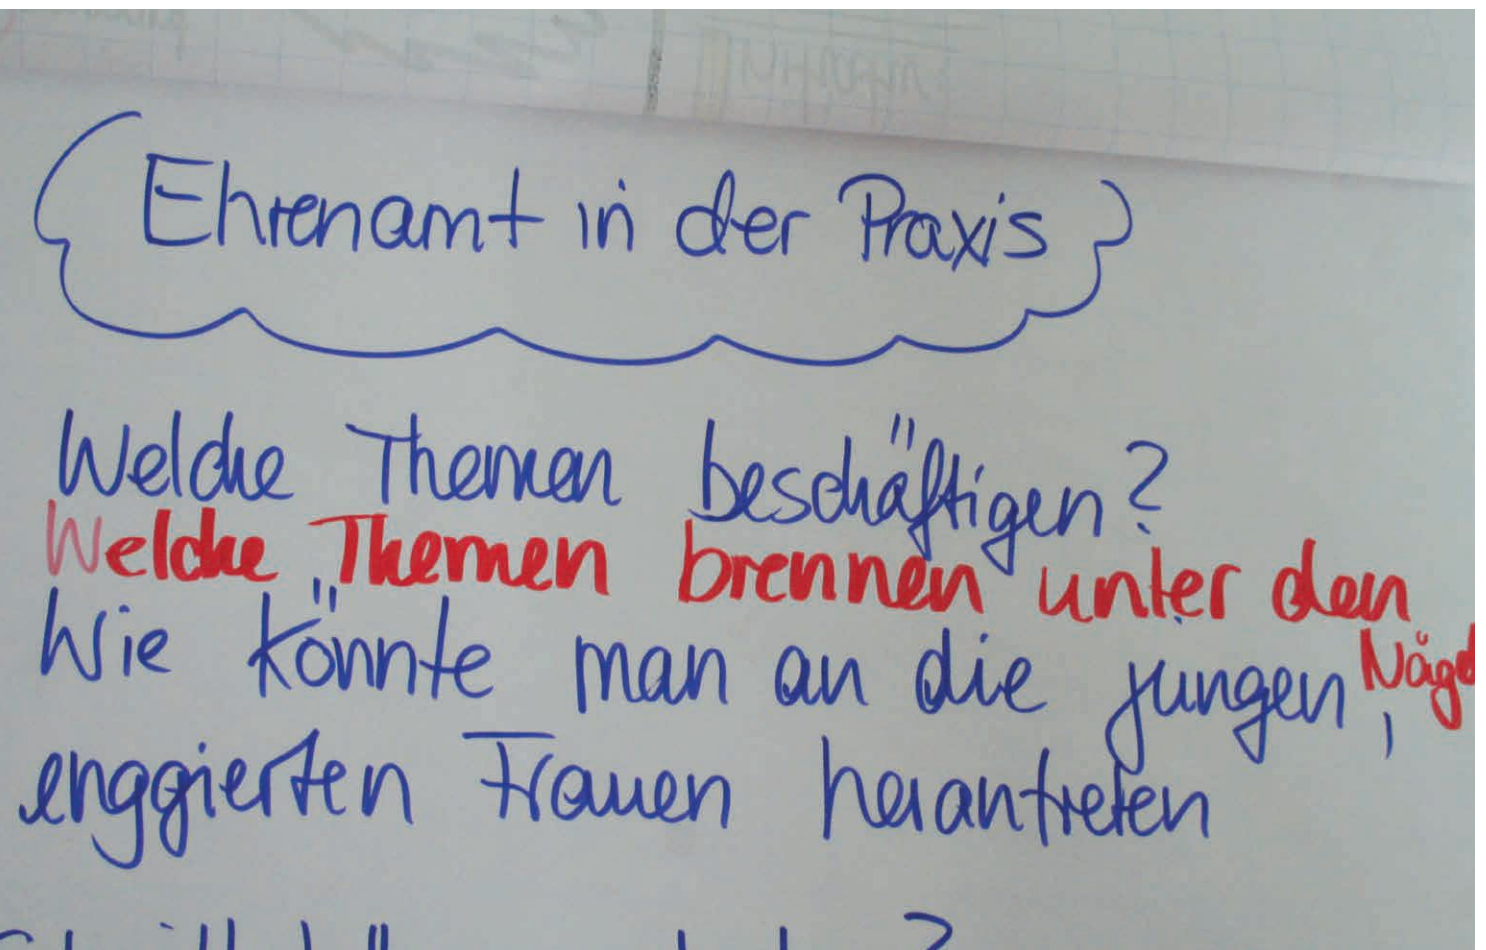 Ehrenamt in der Praxis
Welche Themen beschäftigen?
Welche Themen brennen unter den
Wie könnte man an die jungen,
enggierten Frauen herantreten